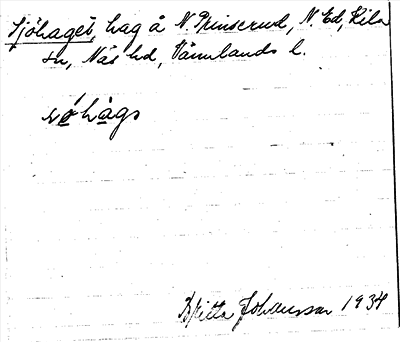 Sjöhaget, hag å N. Prinserud, N. Ed, Kila
sn, Näs hd, Värmlands l.
Britta Johansson 1934